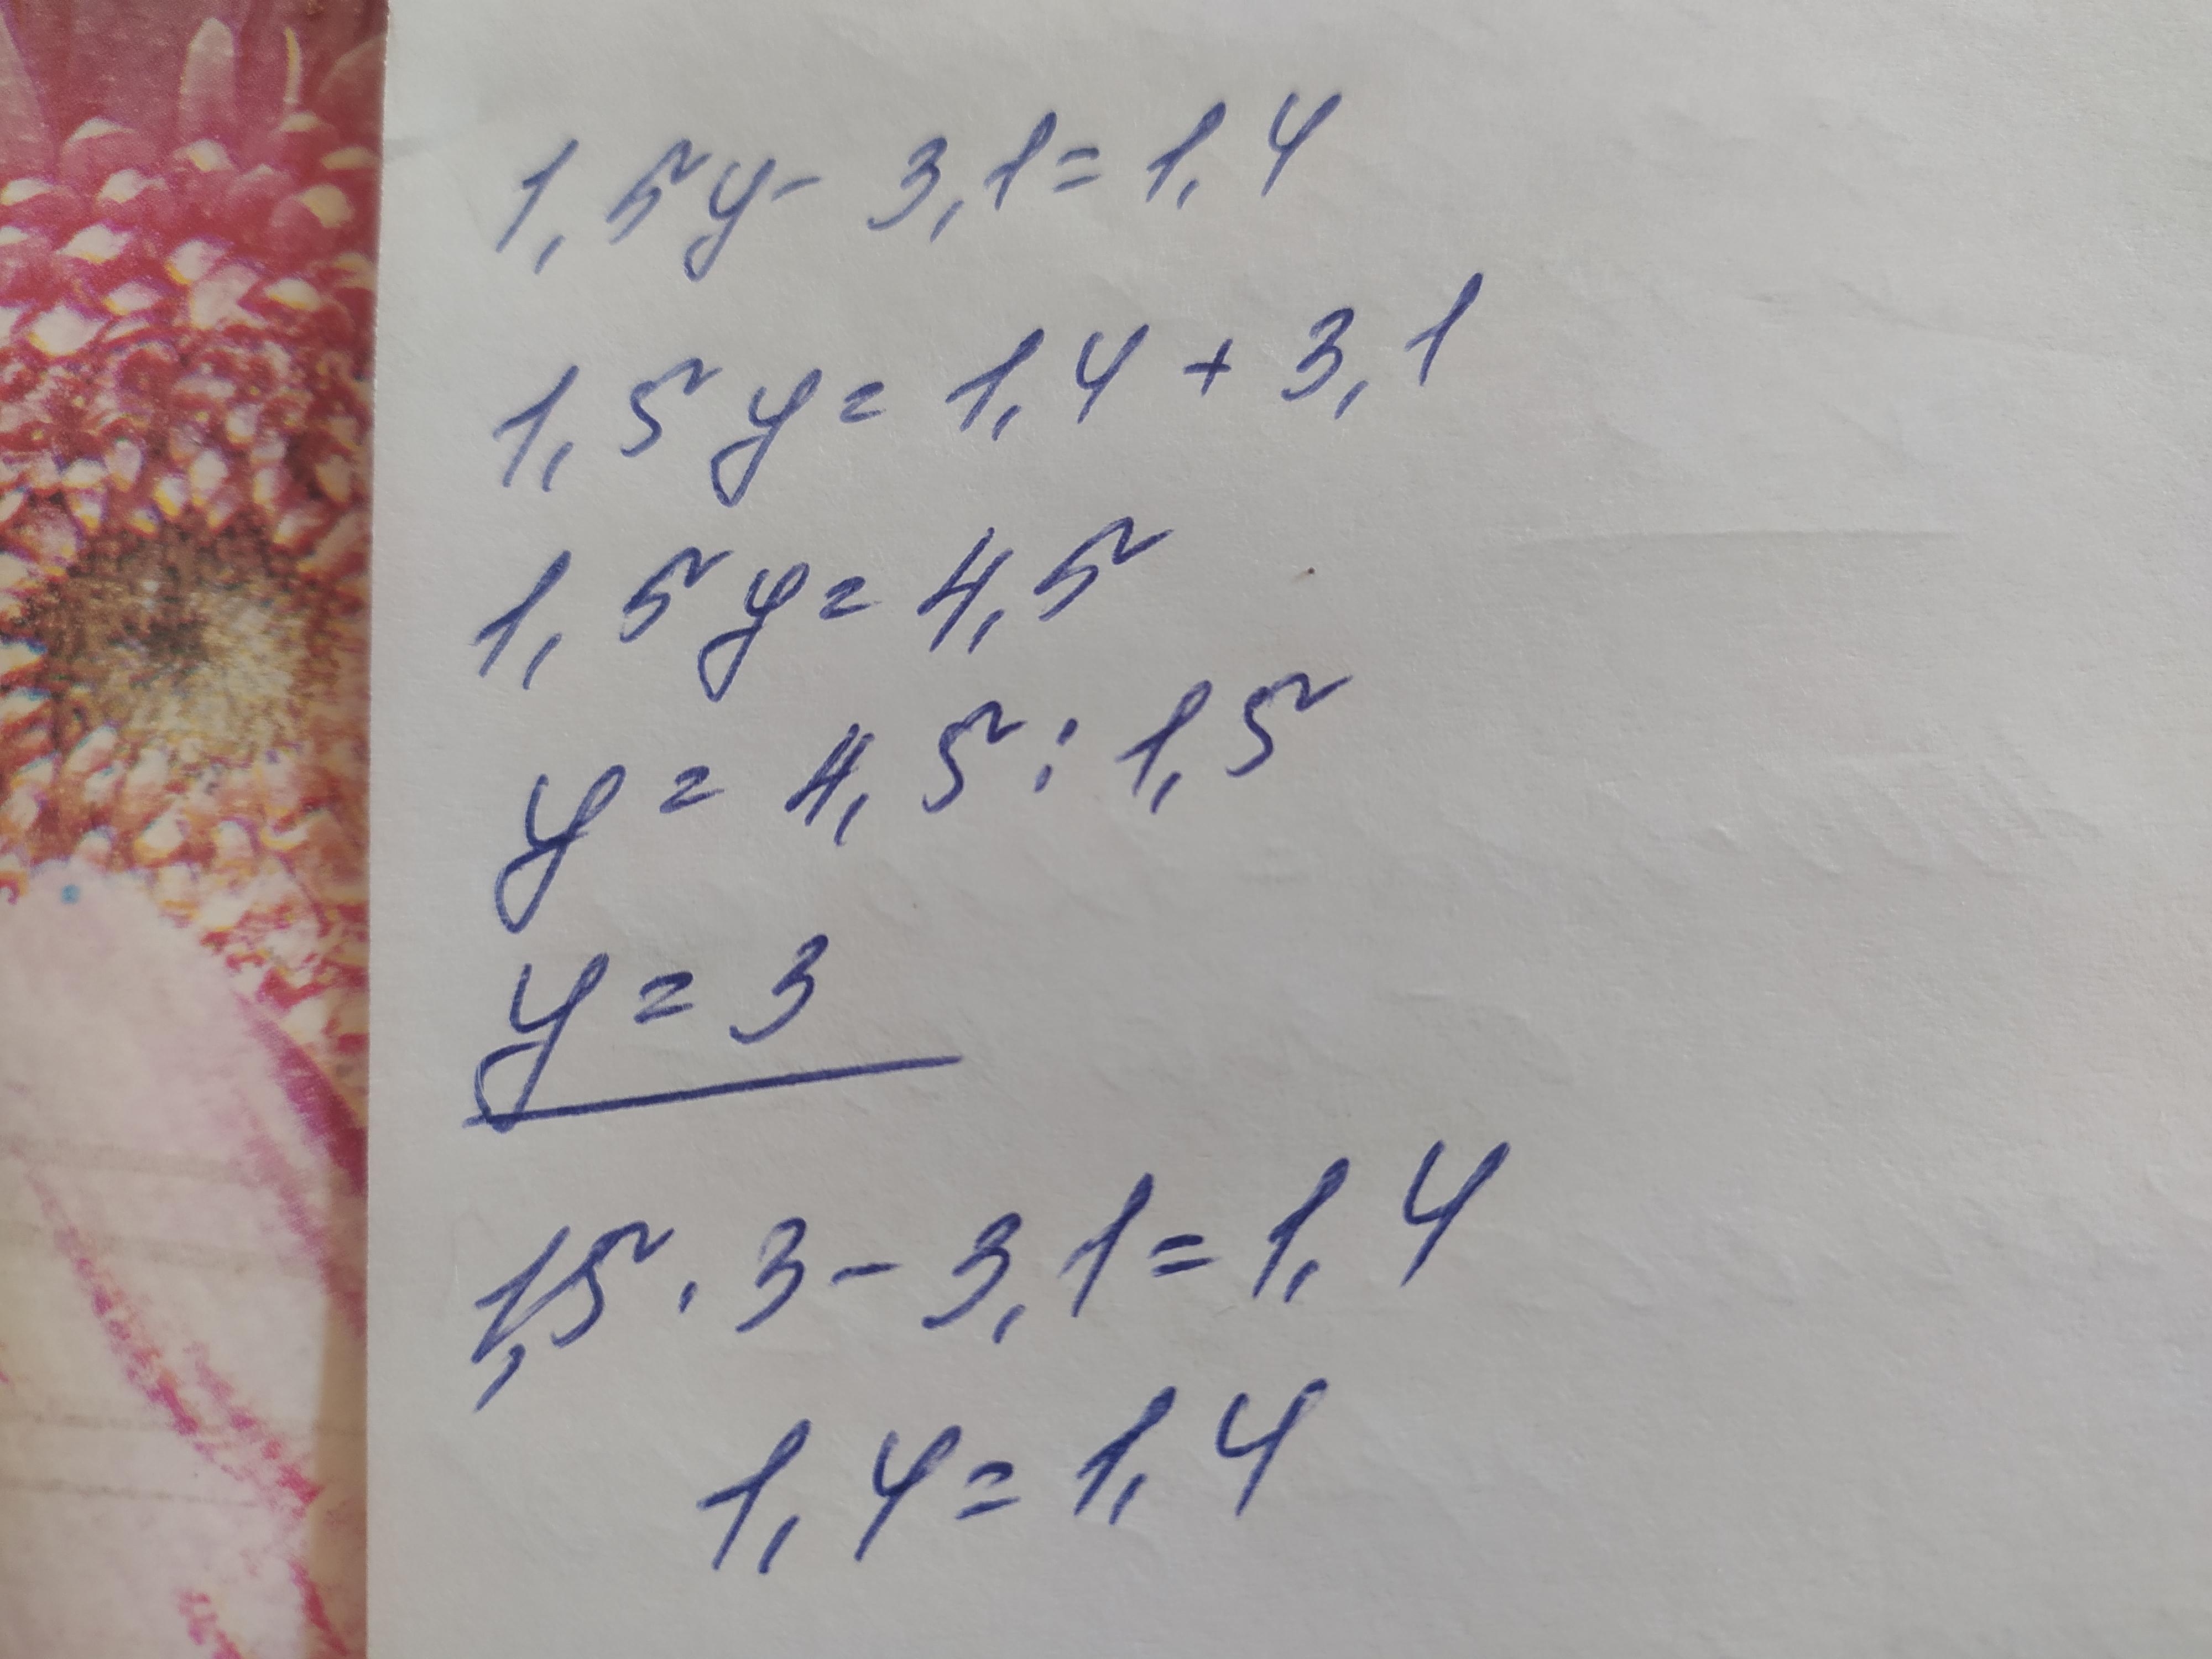 1,5y - 3,1 = 1,4
1,5y = 1,4 + 3,1
1,5y = 4,5
y = 4,5 : 1,5
y = 3
1,5 · 3 - 3,1 = 1,4
1,4 = 1,4